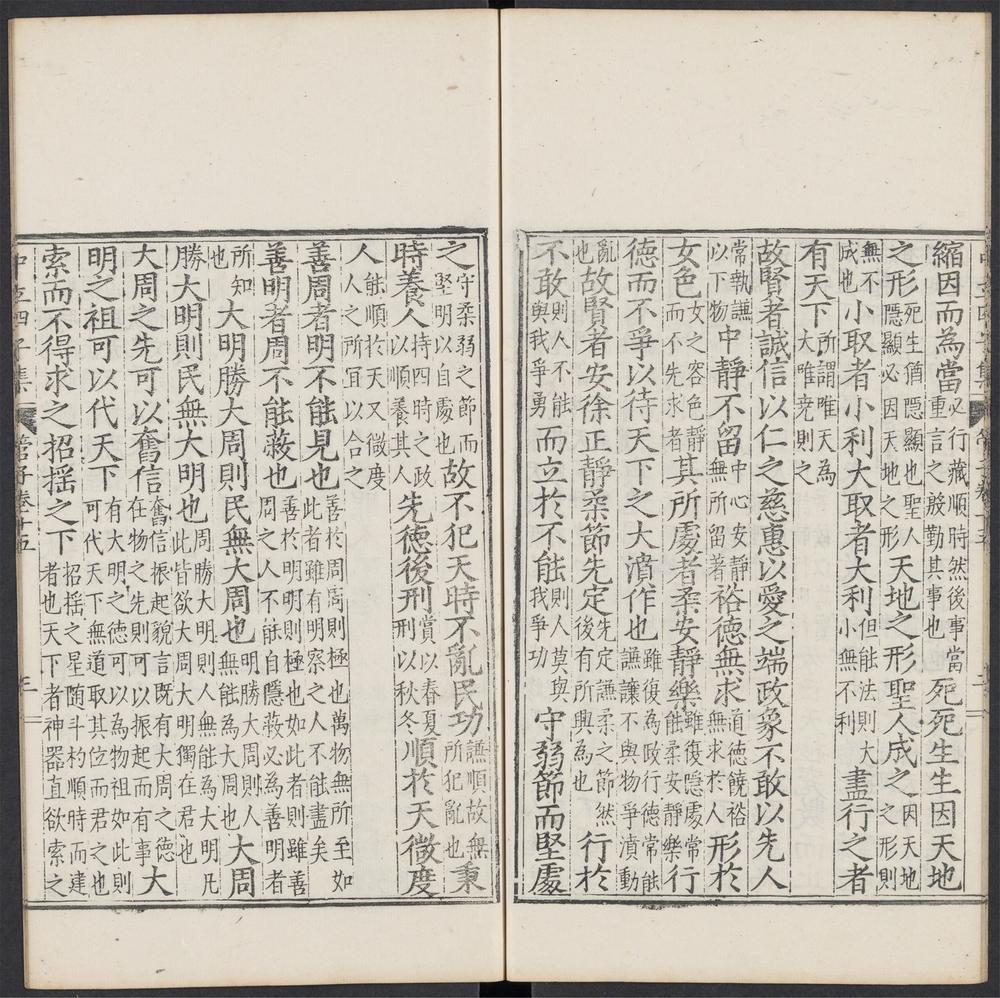 縮因而為當必行藏順時然後事當重言之殷勤其事也死死生生因天地
之形死生猶隱顯也聖人隱顯必因天地之形天地之形聖人成之因天地之形則
無不成也小取者小利大取者大利但能法則大小無不利盡行之者
有天下所謂唯天為大唯堯則之
故賢者誠信以仁之慈惠以愛之端政象不敢以先人
常執謙以下物中靜不留中心安靜無所留著裕德無求道德饒裕無求於人形於
女色女之容色靜而不先求者其所處者柔安靜樂雖復隱處常能柔安靜樂行
德而不爭以待天下之大濆作也雖復為政行德常能謙讓不與物爭濆動
亂也故賢者安徐正靜柔節先定先定謙柔之節然後有所興為也行於
不敢則人不能與我爭勇而立於不能則人莫與我爭功守弱節而堅處
之守柔弱之節而堅明以自處也故不犯天時不亂民功謙順故無所犯亂也秉
時養人持四時之政以順養其人先德後刑賞以春夏刑以秋冬順於天微度
人能順於天又微度人人之所宜以合之
善周者明不能見也善於周周則極也萬物無所至如此者雖有明察之人不能盡矣
善明者周不能蔽也善於明明則極也如此者則雖善周之人不能自隱蔽必為善明者
所知也大明勝大周則民無大周也明勝大周則人無能為大周也大周
勝大明則民無大明也周勝大明則人無能為大明凡此皆欲大周大明獨在君也
大周之先可以奮信奮信振起貌言既有大周之德在物之先則可以振起而有事大
明之祖可以代天下有大明之德可以為物祖如此則可代天下無道取其位而君之也
索而不得求之招搖之下招搖之星隨斗杓順時而建者也天下者神器直欲索之
中立四子集 管子卷十五 三